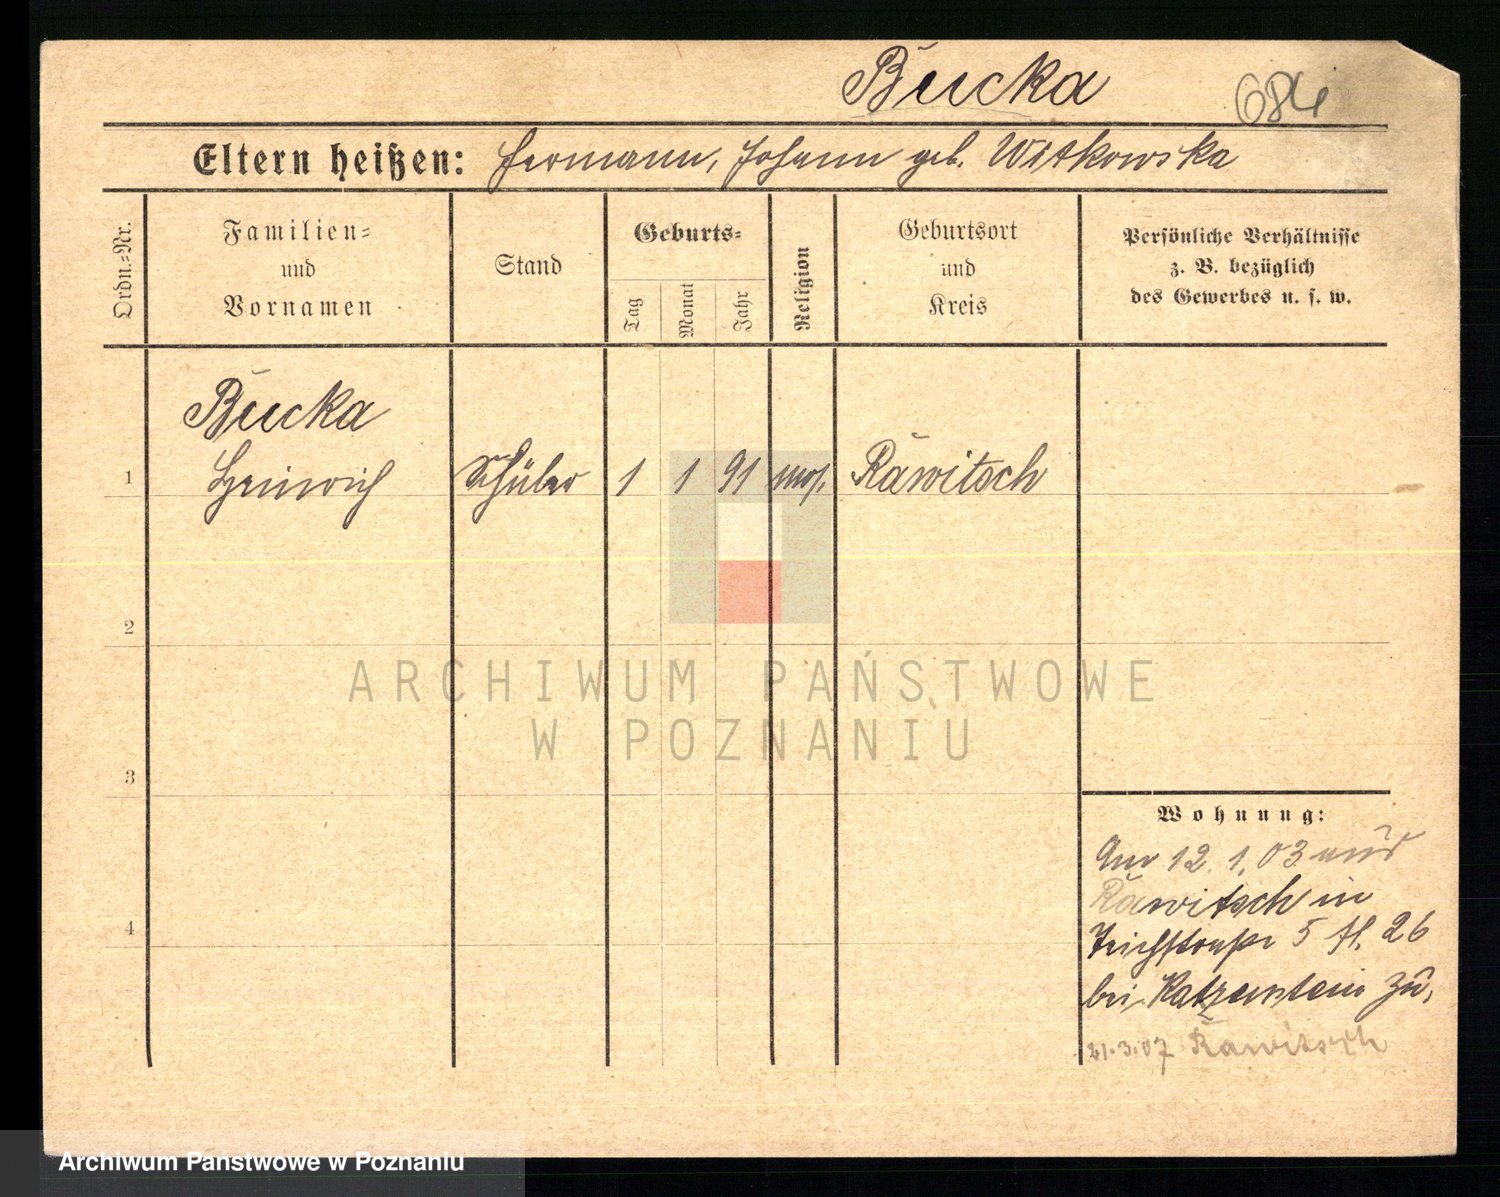 Bucka
684
Eltern heißen: Hermann, Johann geb. Witkowska
Ordn.-Nr.
Familien- und Vornamen
Stand
Geburts-
Tag
Monat
Jahr
Religion
Geburtsort und Kreis
Persönliche Verhältnisse
z. B. bezüglich
des Gewerbes u. s. w.
Bucka
1 Heinrich Schüler 1 1 91 mos. Rawitsch
2
3
4
Wohnung:
Am 12.1.03 aus
Rawitsch in
Teichstraße 5 II. 26
bei Katzenstein zu.
21.3.07 Rawitsch
ARCHIWUM PAŃSTWOWE
W POZNANIU
Archiwum Państwowe w Poznaniu